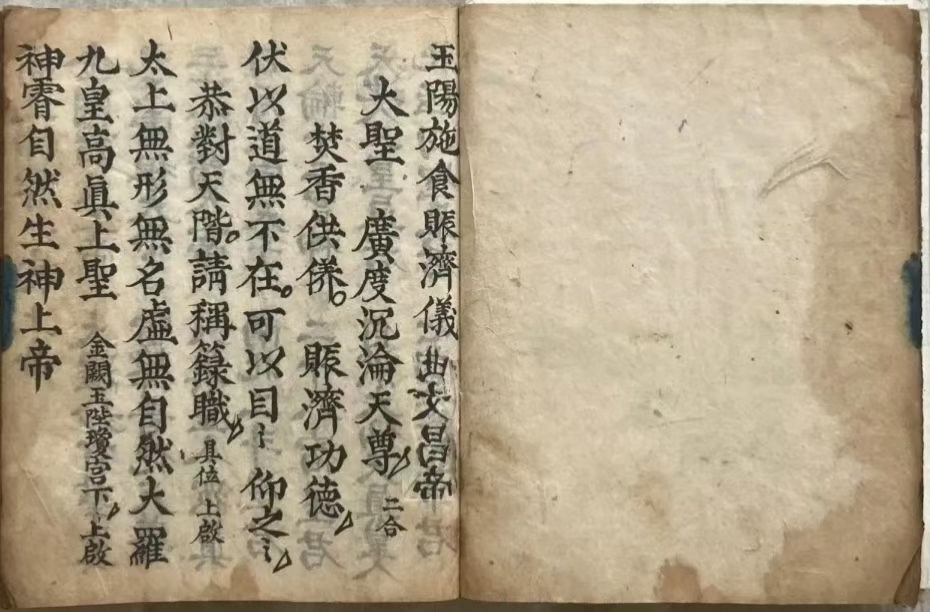 玉陽施食賑濟儀 曲文昌帝
大聖 廣度沉淪天尊 二合
焚香供養。 賑濟功德
伏以道無不在。可以目〻 仰之〻
恭對天階。請稱籙職 具位 上啟
太上無形無名虛無自然大羅
九皇高眞上聖 金闕玉陛瓊宮下 上啟
神霄自然生神上帝